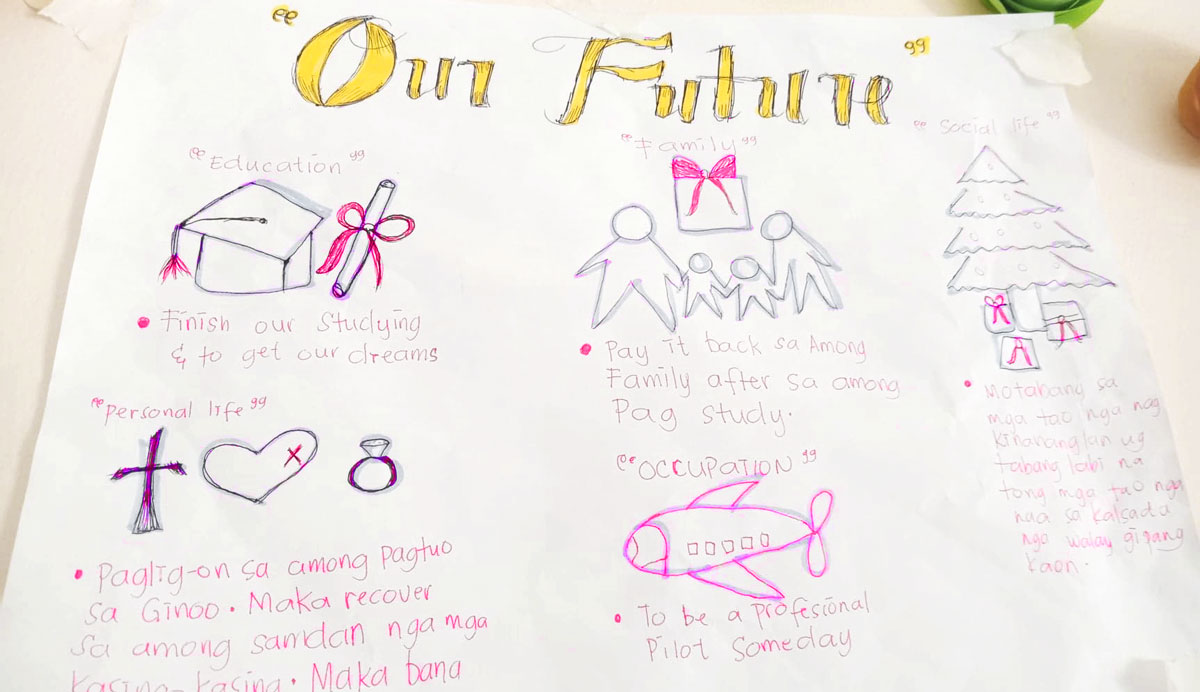 "Our Future"
"Education"
• Finish our Studying
& to get our dreams
"Personal life"
• Paglig-on sa among Pagtuo
sa Ginoo. Maka recover
sa among samdan nga mga
Kasing-kasing. Maka bana
"Family"
• Pay it back sa Among
Family after sa among
Pag study.
"OCCUPATION"
• To be a profesional
Pilot Someday
"Social life"
• Motabang sa
mga tao nga nag
kinahanglan ug
tabang labi na
tong mga tao nga
naa sa kalsada
nga walay gipang
kaon.